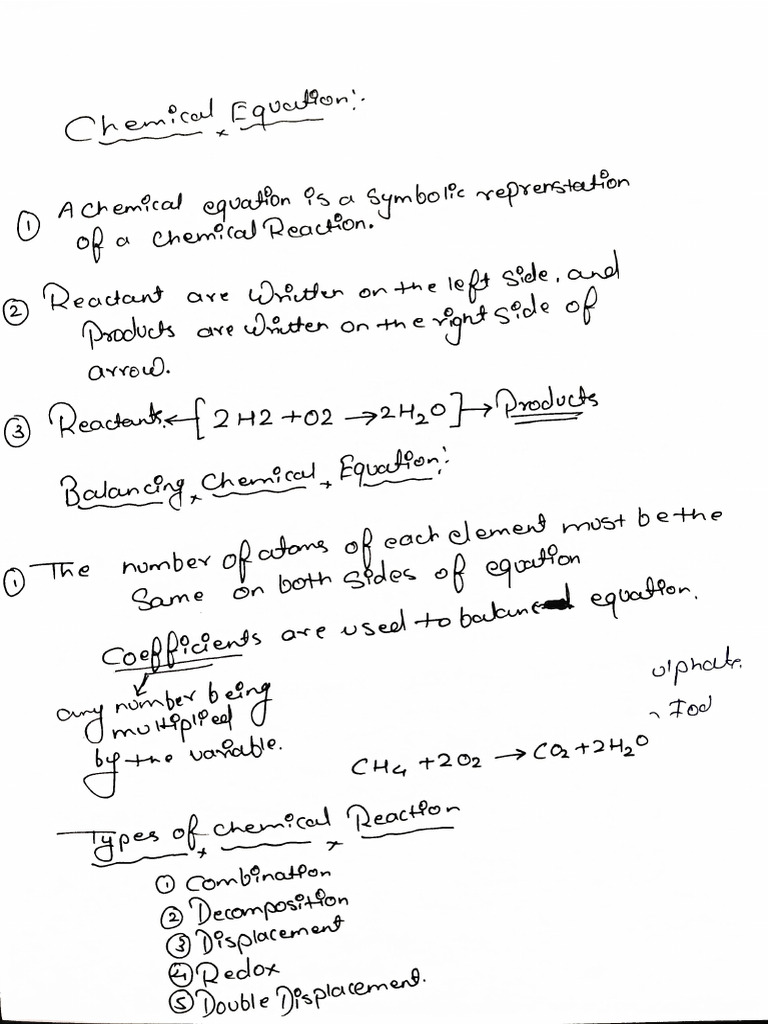 Chemical Equation:
① A chemical equation is a symbolic reprerstation
of a chemical Reaction.
② Reactant are written on the left side, and
Products are written on the right side of
arrow.
③ Reactants ← [2H2 + O2 → 2H₂O] → Products
Balancing Chemical Equation:
① The number of atoms of each element must be the
same on both sides of equation
Coefficients are used to balance equation.
any number being
multiplied
by the variable.
ulphate.
CH₄ + 2O₂ → CO₂ + 2H₂O
Types of chemical Reaction
① Combination
② Decomposition
③ Displacement
④ Redox
⑤ Double Displacement.